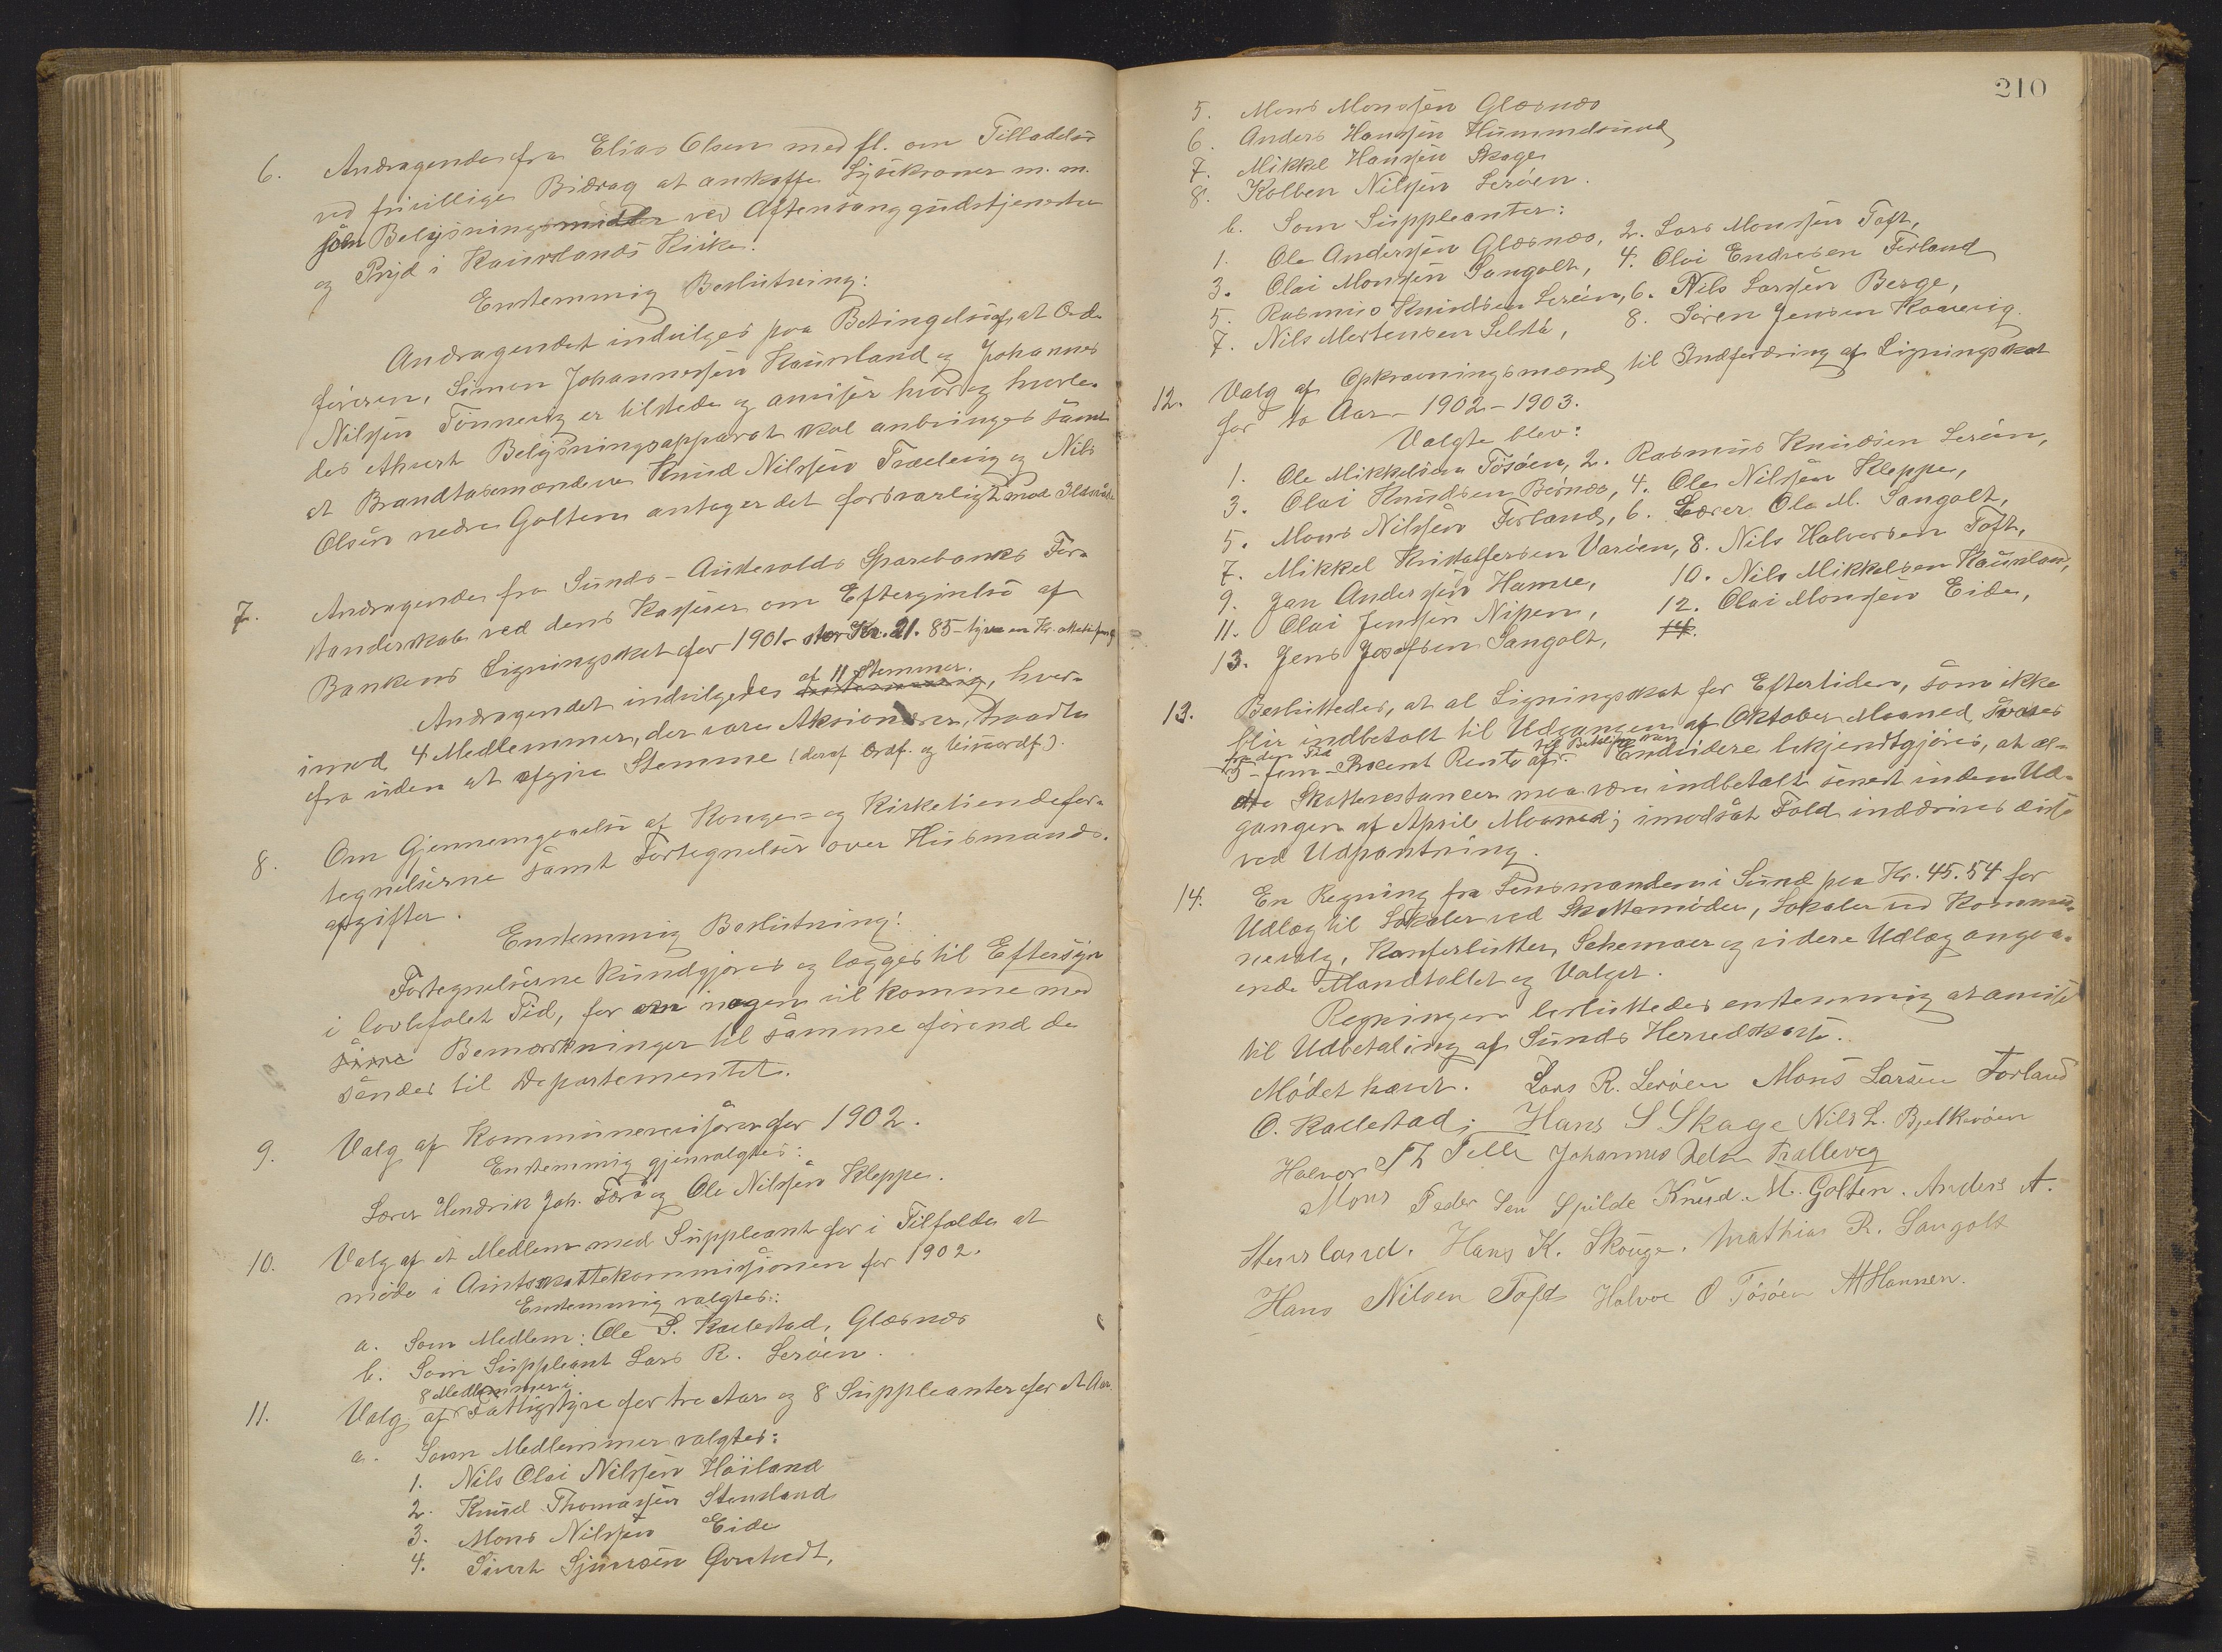 6. Andragende fra Elias Olsen med fl. om Tilladelse
ved frivillige Bidrag at anskaffe Lysekroner m. m.
som Belysningsmidler ved Aftensanggudstjenester
og Pryd i Kausland Kirke.
Enstemmig Beslutning:
Andragendet indvilges paa Betingelse af, at Ord-
föreren, Simon Johannessen Kausland og Johannes
Nilssen Tönnevig er tilstede og anviser hvor og hvorle-
des ethvert Belysningsapparat skal anbringes samt
at Brandtaxmændene Knud Nilssen Trællevig og Nils
Olsen nedre Golten antager det forsvarligt mod Ildsvåde
7. Andragende fra Sunds-Austevolds Sparebanks For-
standerskab ved dens Kasserer om Eftergivelse af
Bankens Ligningsskat for 1901 - stor Kr. 21.85 - tyve en Kr.
Andragendet indvilgedes af 11 Stemmer, hver-
imod 4 Medlemmer, der vare Aktionærer, traadte
fra uden at afgive Stemme (deraf Ordf. og viseordf.).
8. Om Gjennemgaaelse af Konge- og Kirketiendefor-
tegnelserne samt Fortegnelser over Husmands-
afgifter.
Enstemmig Beslutning:
Fortegnelserne kundgjöres og lægges til Eftersyn
i lovbefalet Tid, for om nogen vil komme med
sine Bemærkninger til samme förend de
sendes til Departementet.
9. Valg af Kommunerevisorer for 1902.
Enstemmig gjenvalgtes:
Lærer Hendrik Joh. Færö og Ole Nilssen Kleppe.
10. Valg af et Medlem med Suppleant for i Tilfælde at
möde i Amtsskattekommissionen for 1902.
Enstemmig valgtes:
a. Som Medlem: Ole S. Kallestad, Glæsnæs
b. Som Suppleant Lars R. Leröen.
8 Medlemmer i
11. Valg af Fattigstyre for tre Aar og 8 Suppleanter for et Aar.
a. Som Medlemmer valgtes:
1. Nils Olai Nilssen Höiland
2. Knud Thomassen Stensland
3. Mons Nilssen Eide
4. Sivert Sjursen
210
5. Mons Monssen Glæsnæs
6. Anders Hanssen Hummelsund
7. Mikkel Hanssen Skage
8. Kolben Nilssen Leröen.
b. Som Suppleanter:
1. Ole Anderssen Glæsnæs, 2. Lars Monssen Toft,
3. Olai Monssen Sangolt, 4. Olai Endresen Forland
5. Rasmus Knudsen Leröen, 6. Nils Larssen Berge,
7. Nils Mortensen Selstö, 8. Sören Jensen
12. Valg af Opkrævningsmænd til Indfordring af Ligningsskat
for to Aar - 1902-1903.
Valgte blev:
1. Ole Mikkelsen Tösöen, 2. Rasmus Knudsen Leröen,
3. Olai Knudsen Börnæs, 4. Ole Nilssen Kleppe,
5. Mons Nilssen Forland, 6. Lærer Ole M. Sangolt,
7. Mikkel Kristoffersen Varöen, 8. Nils Halvorsen Toft,
9. Jan Anderssen Hamre, 10. Nils Mikkelsen Kausland,
11. Olai Jenssen Nipen, 12. Olai Monssen Eide,
13. Jens Josefsen Sangolt, 14.
13. Besluttedes, at al Ligningsskat for Eftertiden, som ikke
blir indbetalt til Udgangen af Oktober Maaned svares
fra den Tid
5 - fem - Procent Rente af. Endvidere bekjendtgjöres, at æl-
dre Skatterestancer maa være indbetalt senest inden Ud-
gangen af April Maaned; imodsat Fald inddrives disse
ved Udpantning.
14. En Regning fra Lensmanden i Sund paa Kr. 45.54 for
Udlæg til Lokaler ved Skattemöder, Lokaler ved Kommu-
nevalg, Konferlutter, Schemaer og videre Udlæg angaa-
ende Mandtallet og Valget.
Regningen besluttedes enstemmig at anvise
til Udbetaling af Sunds Herredskasse.
Mödet hævet. Lars R. Leröen Mons Larsen Forland
O. Kallestad; Hans S Skage Nils L. Bjelkaröen
Halvor T Telle Johannes Nelsn Trællevig
Mons Peder Sen Spilde Knud. M. Golten. Anders A.
Stensland. Hans K. Skouge. Mathias R. Sangolt
Hans Nilsen Toft Halvor O Tösöen M Hannen.